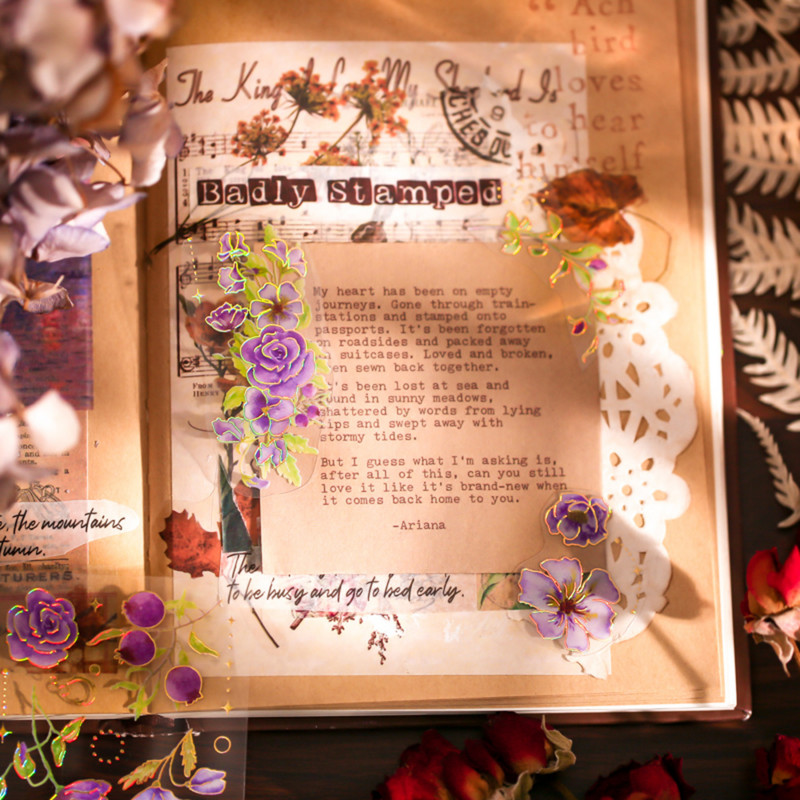 Ach
bird
loves
to hear
himself
The King My Is
Badly Stamped
My heart has been on empty
journeys. Gone through train-
stations and stamped onto
passports. It's been forgotten
on roadsides and packed away
in suitcases. Loved and broken,
then sewn back together.
It's been lost at sea and
found in sunny meadows,
shattered by words from lying
lips and swept away with
stormy tides.
But I guess what I'm asking is,
after all of this, can you still
love it like it's brand-new when
it comes back home to you.
-Ariana
The
to be busy and go to bed early.
From
Henry
the mountains
TURERS.